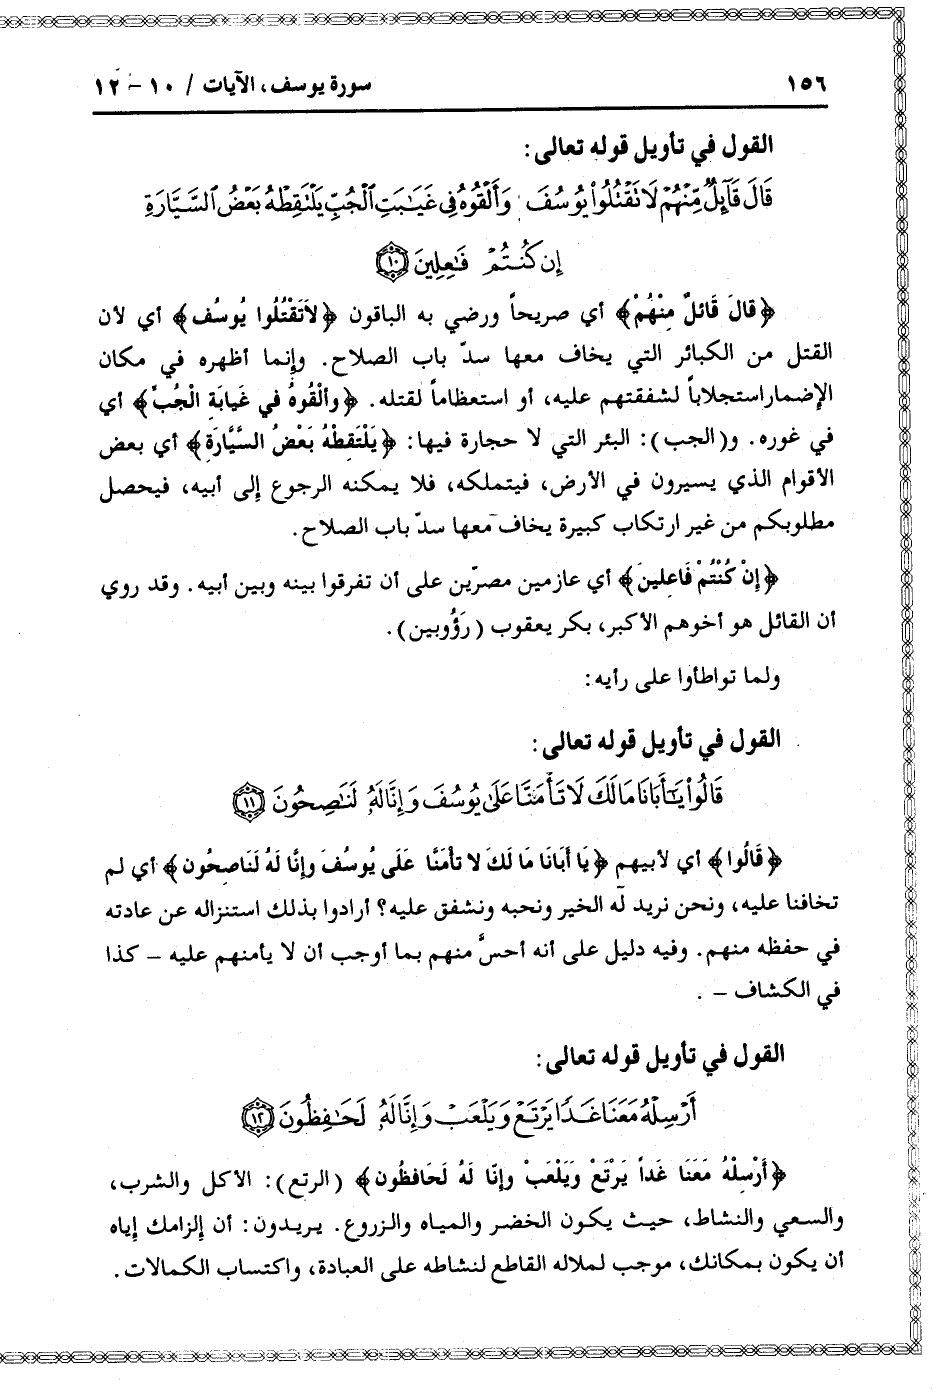 ١٥٦ سورة يوسف، الآيات / ١٠ - ١٢
القول في تأويل قوله تعالى:
قَالَ قَآئِلٌ مِّنْهُمْ لَا تَقْتُلُواْ يُوسُفَ وَأَلْقُوهُ فِي غَيَٰبَتِ ٱلْجُبِّ يَلْتَقِطْهُ بَعْضُ ٱلسَّيَّارَةِ
إِن كُنتُمْ فَٰعِلِينَ ١٠
﴿قالَ قَائلٌ مِنْهُمْ﴾ أي صريحاً ورضي به الباقون ﴿لاَتَقْتُلُوا يُوسُف﴾ أي لأن
القتل من الكبائر التي يخاف معها سدّ باب الصلاح. وإنما أظهره في مكان
الإضمار استجلاباً لشفقتهم عليه، أو استعظاماً لقتله. ﴿وألْقُوهُ في غيابَة الْجُبِّ﴾ أي
في غوره. و(الجب): البئر التي لا حجارة فيها: ﴿يَلْتَقِطْهُ بَعْضُ السَّيَّارَة﴾ أي بعض
الأقوام الذي يسيرون في الأرض، فيتملكه، فلا يمكنه الرجوع إلى أبيه، فيحصل
مطلوبكم من غير ارتكاب كبيرة يخاف معها سدّ باب الصلاح.
﴿إنْ كُنْتُمْ فَاعلينَ﴾ أي عازمين مصرّين على أن تفرقوا بينه وبين أبيه. وقد روي
أن القائل هو أخوهم الأكبر، بكر يعقوب (رَؤُوبين).
ولما تواطأوا على رأيه:
القول في تأويل قوله تعالى:
قَالُواْ يَٰٓأَبَانَا مَالَكَ لَا تَأْمَ۫نَّا عَلَىٰ يُوسُفَ وَإِنَّا لَهُۥ لَنَٰصِحُونَ ١١
﴿قَالُوا﴾ أي لأبيهم ﴿يَا أبَانَا مَا لَكَ لا تأمَنَّا عَلَى يُوسُفَ وإنَّا لَهُ لَنَاصحُون﴾ أي لم
تخافنا عليه، ونحن نريد له الخير ونحبه ونشفق عليه؟ أرادوا بذلك استنزاله عن عادته
في حفظه منهم. وفيه دليل على أنه أحسَّ منهم بما أوجب أن لا يأمنهم عليه – كذا
في الكشاف – .
القول في تأويل قوله تعالى:
أَرْسِلْهُ مَعَنَا غَدًا يَرْتَعْ وَيَلْعَبْ وَإِنَّا لَهُۥ لَحَٰفِظُونَ ١٢
﴿أَرْسِلْهُ مَعَنَا غَداً يَرْتَعْ وَيَلْعَبْ وإنَّا لَهُ لَحَافظُون﴾ (الرتع): الأكل والشرب،
والسعي والنشاط، حيث يكون الخضر والمياه والزروع. يريدون: أن إلزامك إياه
أن يكون بمكانك، موجب لملاله القاطع لنشاطه على العبادة، واكتساب الكمالات.